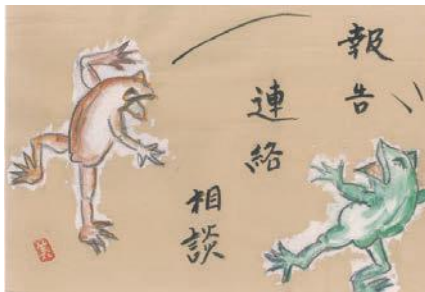 報告、
連絡
相談